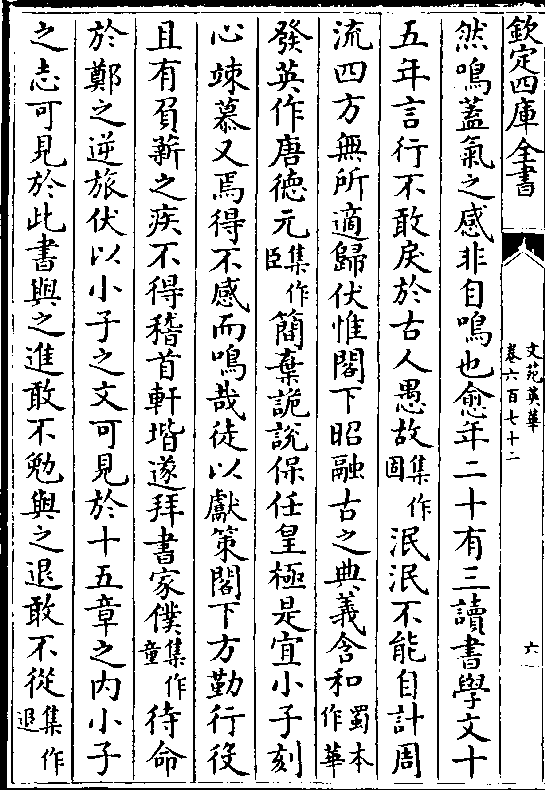 欽定四庫全書
文苑英華
卷六百七十二
六
然鳴蓋氣之感非自鳴也愈年二十有三讀書學文十
五年言行不敢戾於古人愚故集作固泯泯不能自計周
流四方無所適歸伏惟閣下昭融古之典義含和蜀本作華
發英作唐德元集作臣簡棄詭說保任皇極是宜小子刻
心竦慕又焉得不感而鳴哉徒以獻策閣下方勤行役
且有負薪之疾不得稽首軒堦遂拜書家僕集作童待命
於鄭之逆旅伏以小子之文可見於十五章之內小子
之志可見於此書與之進敢不勉與之退敢不從集作退